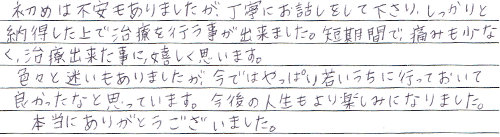 初めは不安もありましたが丁寧にお話しをして下さり、しっかりと
納得した上で治療を行う事が出来ました。短期間で、痛みも少な
く、治療出来た事に嬉しく思います。
色々と迷いもありましたが、今ではやっぱり若いうちに行っておいて
良かったなと思っています。今後の人生もより楽しみになりました。
本当にありがとうございました。